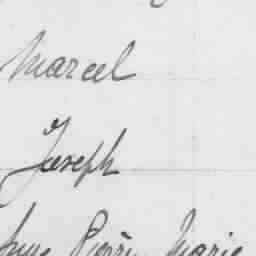 Marcel
Joseph
Pierre Marie